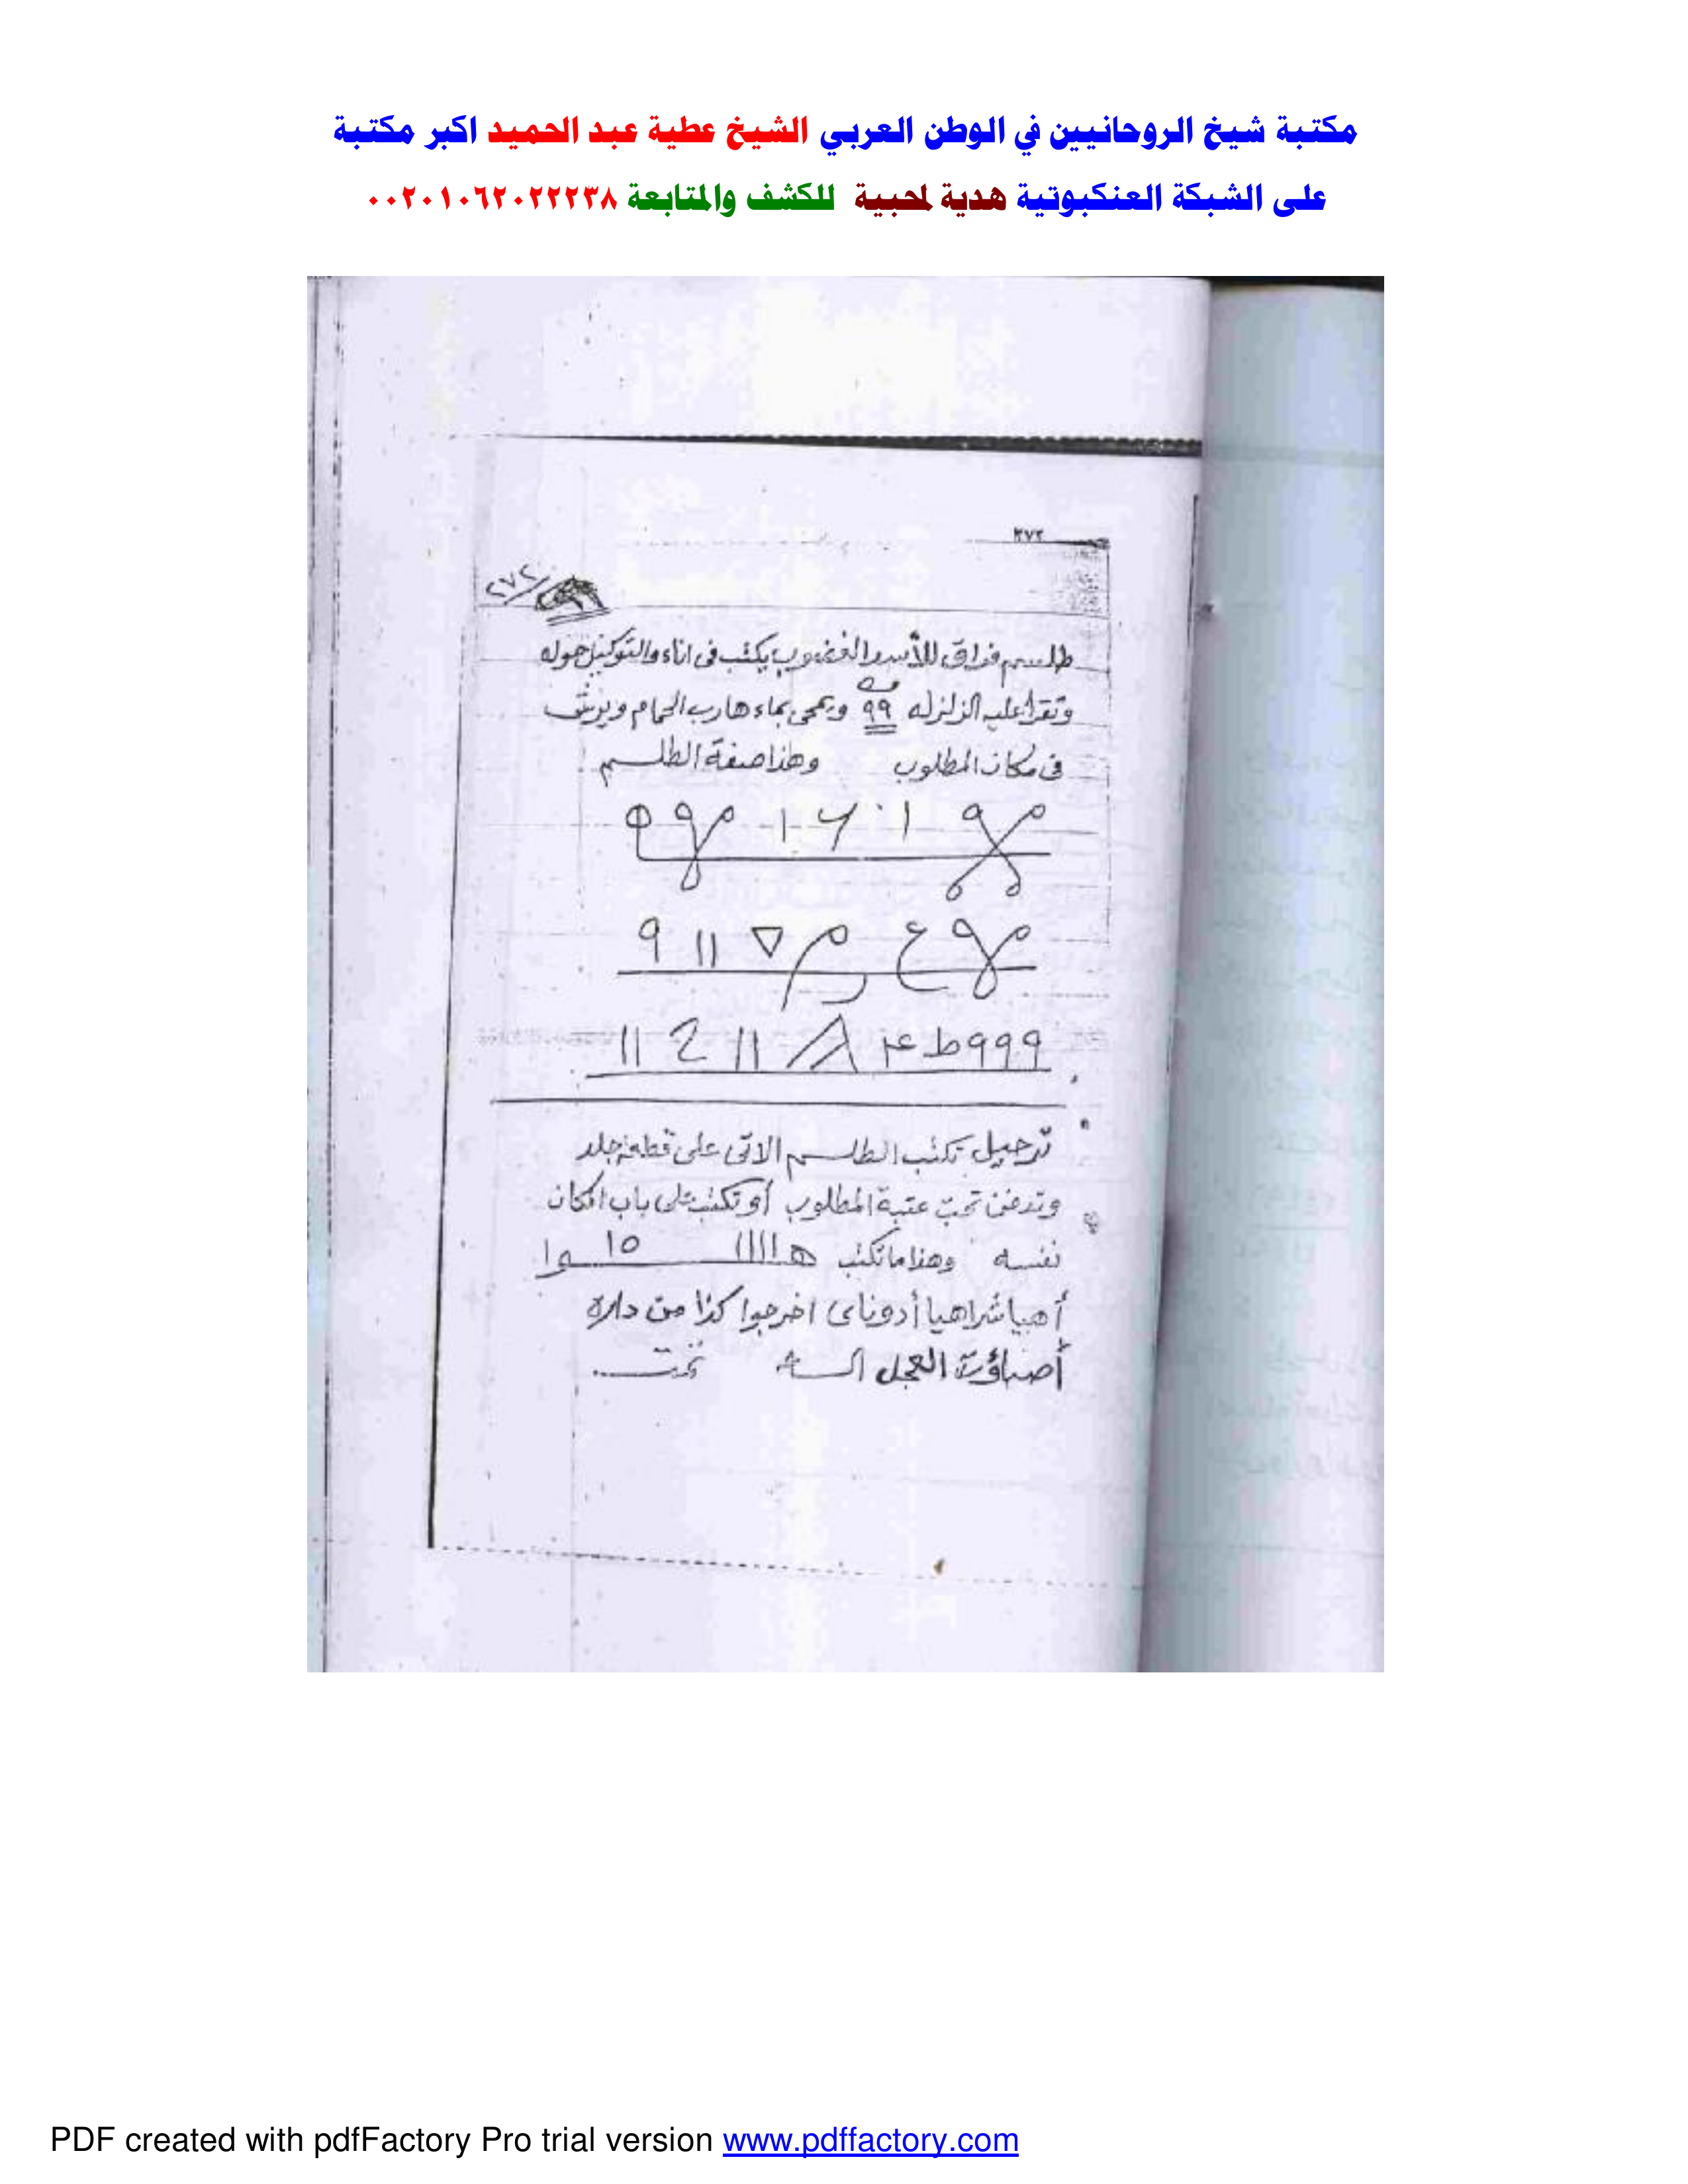 مكتبة شيخ الروحانيين في الوطن العربي الشيخ عطية عبد الحميد اكبر مكتبة
على الشبكة العنكبوتية هدية لمحبية للكشف والمتابعة ٠٠٢٠١٠٦٢٠٢٢٢٣٨
٢٧٢
٢٧٢
طلسم فراق للأسد الغضوب يكتب فى اناء والتوكيل حوله
وتقرا عليه الزلزله ٩٩ ويمحى بماء هارب الحمام ويرش
فى مكان المطلوب وهذا صفة الطلسم
٩٩٩ط
ترحيل تكتب الطلسم الاتى على قطعة جلد
وتدفن تحت عتبة المطلوب أو تكتب على باب المكان
نفسه وهذا ما تكتب
أهيا شراهيا أدوناى اخرجوا كذا من داره
أصباؤت العجل تمت
PDF created with pdfFactory Pro trial version www.pdffactory.com